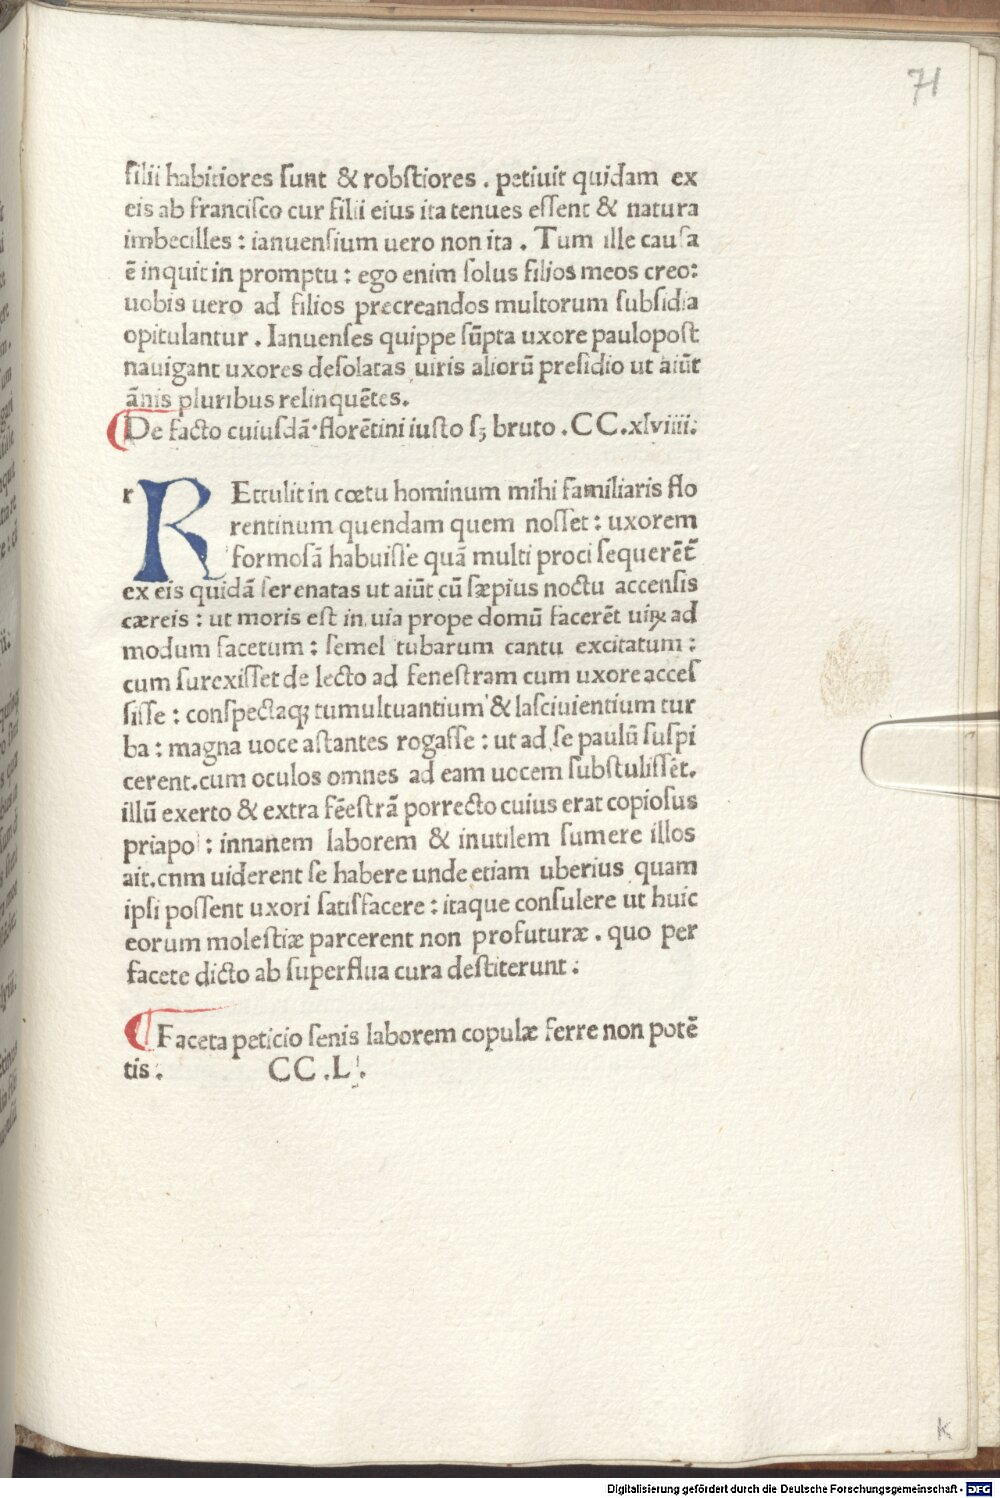 71
filii habitiores ſunt & robſtiores . petiuit quidam ex
eis ab franciſco cur filii eius ita tenues eſſent & natura
imbecilles : ianuenſium uero non ita . Tum ille cauſa
ē inquit in promptu : ego enim ſolus filios meos creo:
uobis uero ad filios precreandos multorum ſubſidia
opitulantur . Ianuenſes quippe ſūpta uxore paulopoſt
nauigant uxores deſolatas uiris aliorū preſidio ut aiūt
ānis pluribus relinquētes.
De facto cuiuſdā florētini iuſto ſꝫ bruto .CC.xlviiii.
r REttulit in cœtu hominum mihi familiaris flo
rentinum quendam quem noſſet : uxorem
formoſā habuiſſe quā multi proci ſequerēt̄
ex eis quidā ſerenatas ut aiūt cū ſæpius noctu accenſis
cæreis : ut moris eſt in uia prope domū facerēt uiꝝ ad
modum facetum : ſemel tubarum cantu excitatum :
cum ſurexiſſet de lecto ad feneſtram cum uxore acceſ
ſiſſe : conſpectaqꝫ tumultuantium & laſciuientium tur
ba : magna uoce aſtantes rogaſſe : ut ad ſe paulū ſuſpi
cerent.cum oculos omnes ad eam uocem ſubſtuliſſēt.
illū exerto & extra fēeſtrā porrecto cuius erat copioſus
priapo : innanem laborem & inutilem ſumere illos
ait.cnm uiderent ſe habere unde etiam uberius quam
ipſi poſſent uxori ſatiſfacere : itaque conſulere ut huic
eorum moleſtiæ parcerent non profuturæ . quo per
facete dicto ab ſuperflua cura deſtiterunt :
Faceta peticio ſenis laborem copulæ ferre non potē
tis : CC .L .
k
Digitalisierung gefördert durch die Deutsche Forschungsgemeinschaft - DFG